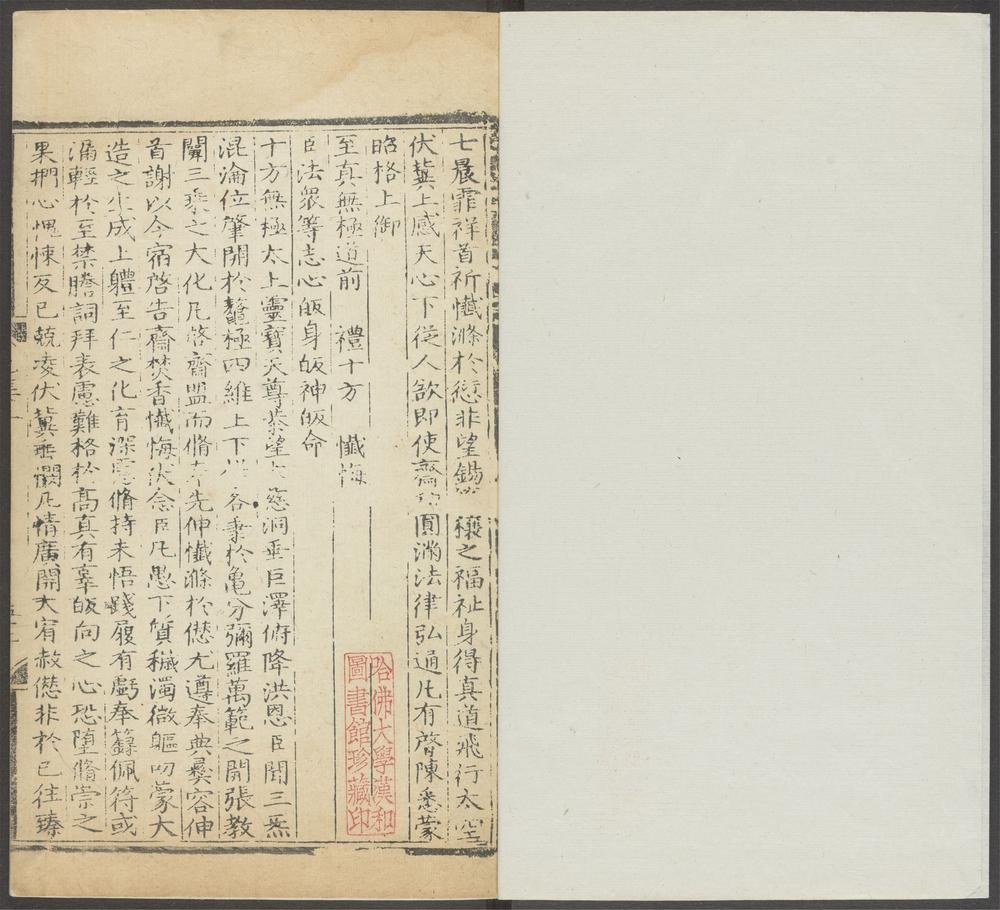 七晨霏祥首祈懺滌於愆非望錫 穰之福祉身得真道飛行太空
伏冀上感天心下從人欲即使齋 圓滿法律弘通凡有啓陳悉蒙
昭格上御
至真無極道前 禮十方 懺悔
臣法眾等志心皈身皈神皈命
十方無極太上靈寶天尊恭望 慈洞垂巨澤俯降洪恩臣聞三炁
混淪位肇開於鼇極四維上下 各秉於亀分彌羅萬範之開張教
闡三乘之大化凡啓齋盟而脩奉先伸懺滌於愆尤遵奉典彞容伸
首謝以今宿啓告齋焚香懺悔伏念臣凡愚下質穢濁微軀叨蒙大
造之生成上體至仁之化育深 脩持未悟踐履有虧奉籙佩符或
漏輕於至禁謄詞拜表慮難格於高真有辜皈向之心恐墮脩崇之
果捫心愧悚反已兢凌伏冀垂 凡情廣開大宥赦愆非於已往臻
哈佛大學漢和
圖書館珍藏印